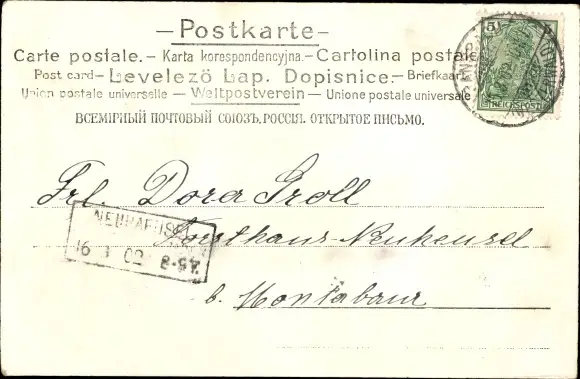 Postkarte
Carte postale. - Karta korespondencyjna. - Cartolina postale
Post card - Levelező Lap. Dopisnice. - Briefkaart
Union postale universelle - Weltpostverein - Unione postale universale
ВСЕМІРНЫЙ ПОЧТОВЫЙ СОЮЗЪ. РОССІЯ. ОТКРЫТОЕ ПИСЬМО.
5
REICHSPOST
Frl. Dora Groll
Forsthaus-Neuheusel
b. Montabaur
NEUHAEUSEL
16 3 02 8-9V.